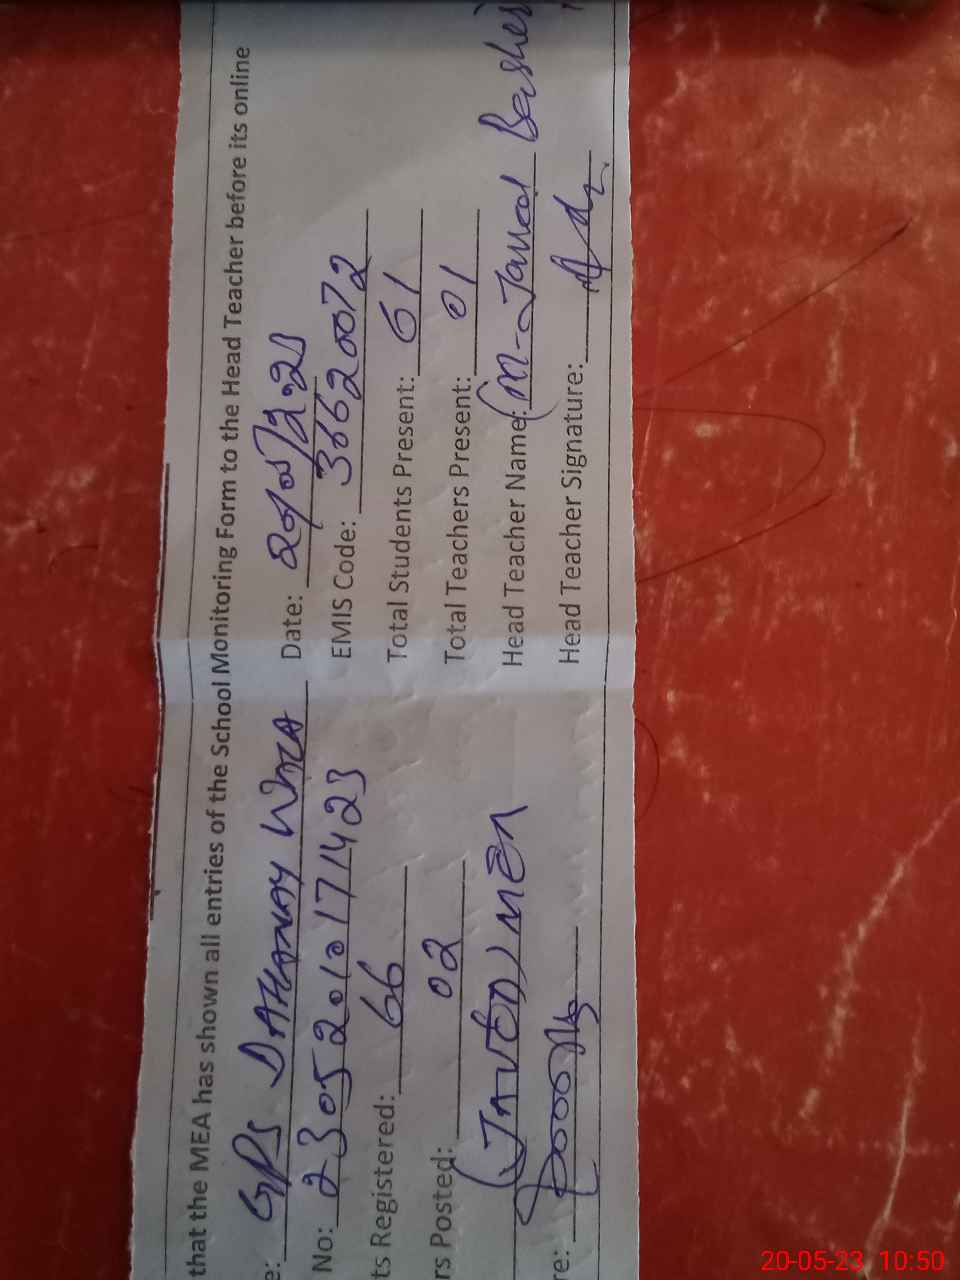 that the MEA has shown all entries of the School Monitoring Form to the Head Teacher before its online
e: GPS DAHANAY WALA Date:
No: 23052010171423 EMIS Code: 36620072
ts Registered: 66 Total Students Present: 61
rs Posted: 02 Total Teachers Present: 01
(JAVED) MEA Head Teacher Name: (M-Jamal Bashir
re: Head Teacher Signature:
20-05-23 10:50